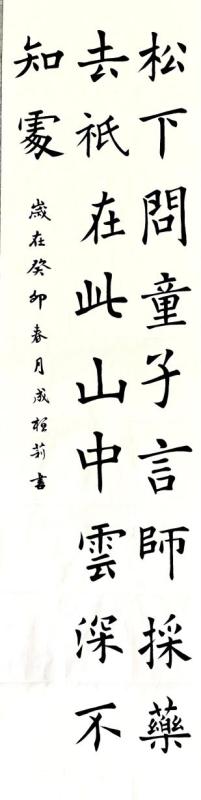 松下問童子言師採藥
去祇在此山中雲深不
知處
歲在癸卯春月成桓莉書